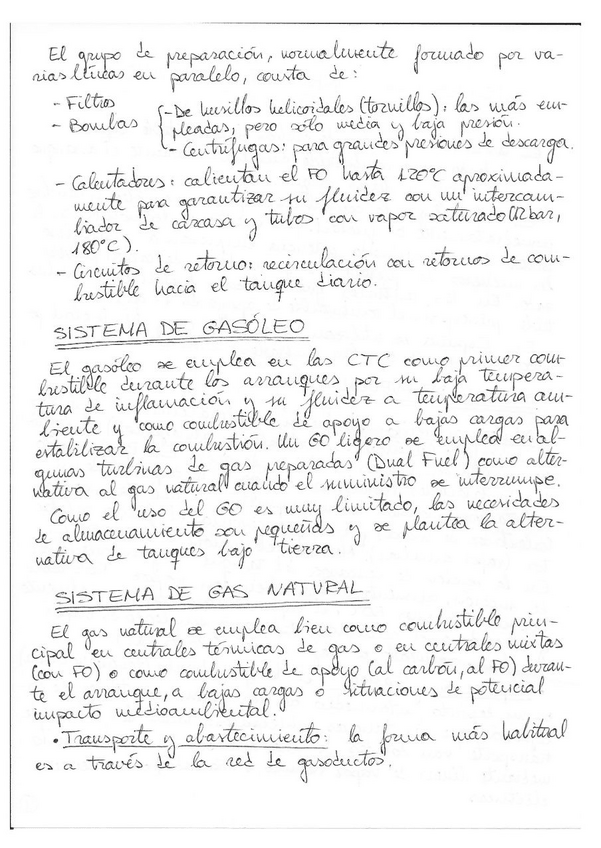 El grupo de preparación, normalmente formado por va-
rias líneas en paralelo, consta de:
- Filtros
- Bombas
- De husillos helicoidales (tornillos): las más em-
pleadas, pero sólo media y baja presión.
- Centrífugas: para grandes presiones de descarga.
- Calentadores: calientan el FO hasta 120°C aproximada-
mente para garantizar su fluidez con un intercam-
biador de carcasa y tubos con vapor saturado (12 bar,
180°C).
- Circuitos de retorno: recirculación con retornos de com-
bustible hacia el tanque diario.
SISTEMA DE GASÓLEO
El gasóleo se emplea en las CTC como primer com-
bustible durante los arranques por su baja tempera-
tura de inflamación y su fluidez a temperatura am-
biente y como combustible de apoyo a bajas cargas para
estabilizar la combustión. Un GO ligero se emplea en al-
gunas turbinas de gas preparadas (Dual Fuel) como alter-
nativa al gas natural cuando el suministro se interrumpe.
Como el uso del GO es muy limitado, las necesidades
de almacenamiento son pequeñas y se plantea la alter-
nativa de tanques bajo tierra.
SISTEMA DE GAS NATURAL
El gas natural se emplea bien como combustible prin-
cipal en centrales térmicas de gas o en centrales mixtas
(con FO) o como combustible de apoyo (al carbón, al FO) duran-
te el arranque, a bajas cargas o situaciones de potencial
impacto medioambiental.
• Transporte y abastecimiento: la forma más habitual
es a través de la red de gasoductos.